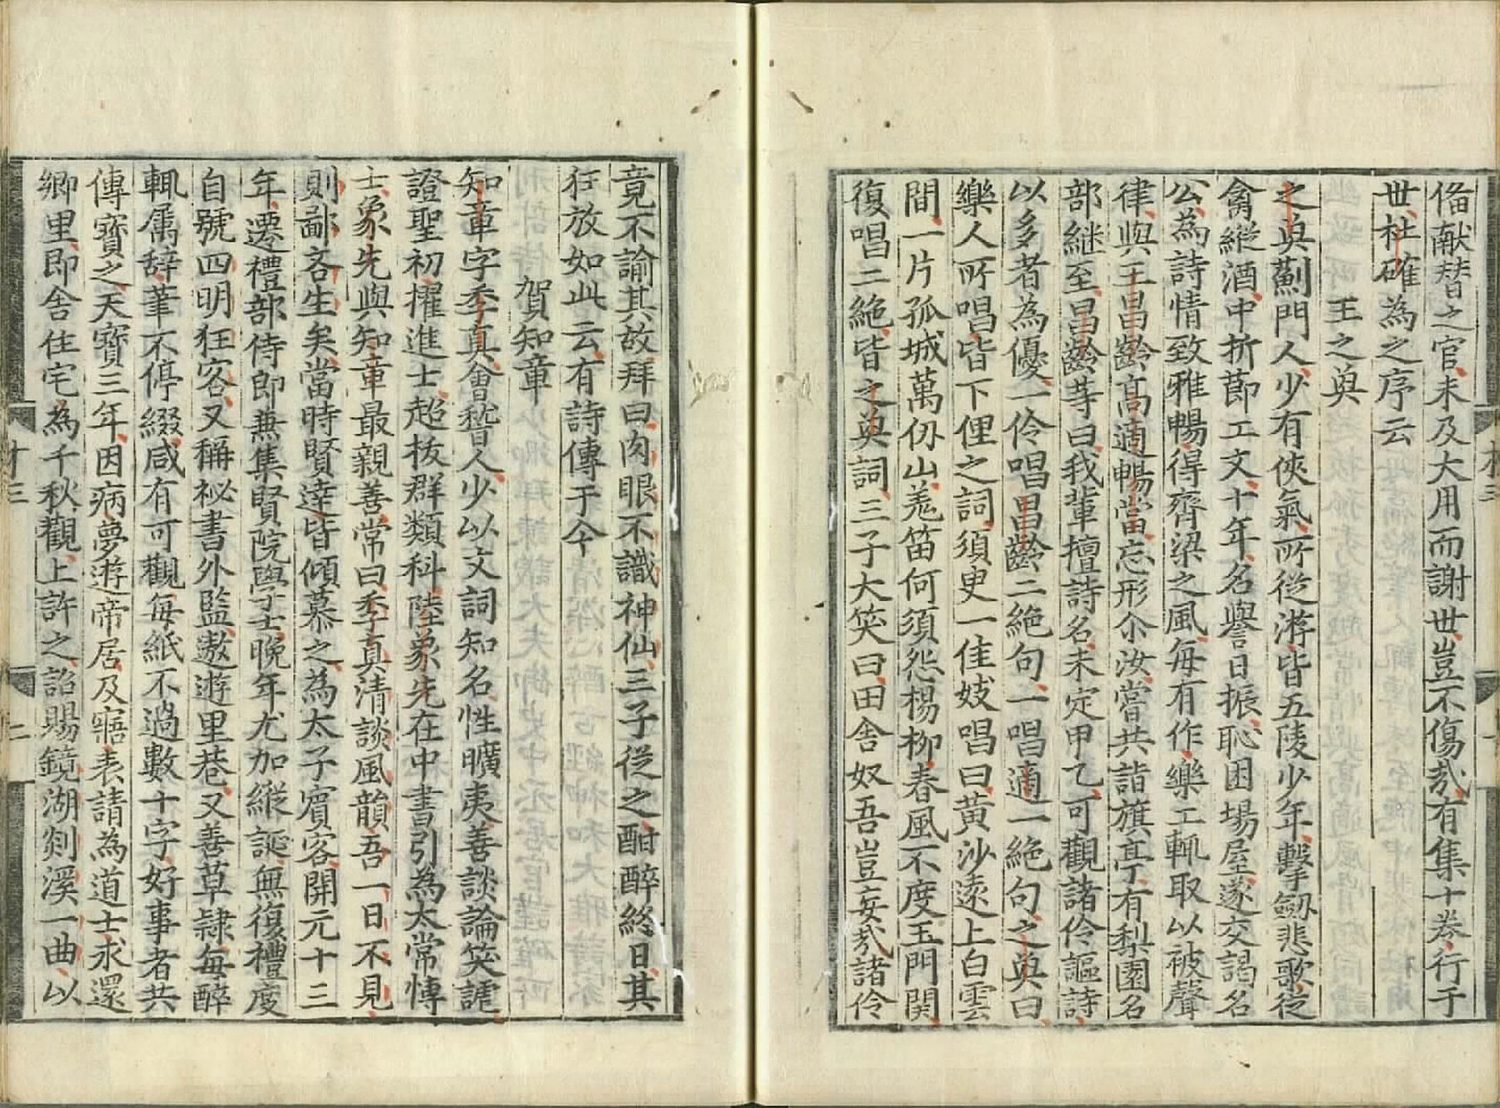 備献替之官未及大用而謝世豈不傷㢤有集十卷行于
世杜確為之序云
王之奐
之奐薊門人少有俠氣所從游皆五陵少年擊劔悲歌從
禽縱酒中折莭工文十年名譽日振恥困場屋遂交謁名
公為詩情致雅暢得齊梁之風每有作樂工輒取以被聲
律與王昌齡髙適暢當忘形尒汝嘗共詣旗亭有梨園名
部継至昌齡䓁曰我輩擅詩名未定甲乙可觀諸伶謳詩
以多者為優一伶唱昌齡二絶句一唱適一絶句之奐曰
樂人所唱皆下俚之詞須臾一佳妓唱曰黄沙逺上白雲
間一片孤城萬仭山羗笛何須怨楊柳春風不度玉門関
復唱二絶皆之奐詞三子大笑曰田舍奴吾豈妄㢤諸伶
竟不諭其故拜曰肉眼不識神仙三子從之酣醉終日其
狂放如此云有詩傳于今
賀知章
知章字季真會嵆人少以文詞知名性曠夷善談論笑謔
證聖初擢進士超抜群類科陸象先在中書引為太常愽
士象先與知章最親善常曰季真清談風韻吾一日不見
則鄙吝生矣當時賢達皆傾慕之為太子賔客開元十三
年遷禮部侍郎兼集賢院學士晚年尤加縱誕無復禮度
自號四明狂客又稱秘書外監遨遊里巷又善草隷每醉
輒属辞筆不停綴咸有可觀每紙不過數十字好事者共
傳寶之天寶三年因病夢遊帝居及寤表請為道士求還
郷里即舍住宅為千秋觀上許之詔賜鏡湖剡溪一曲以
十三
二